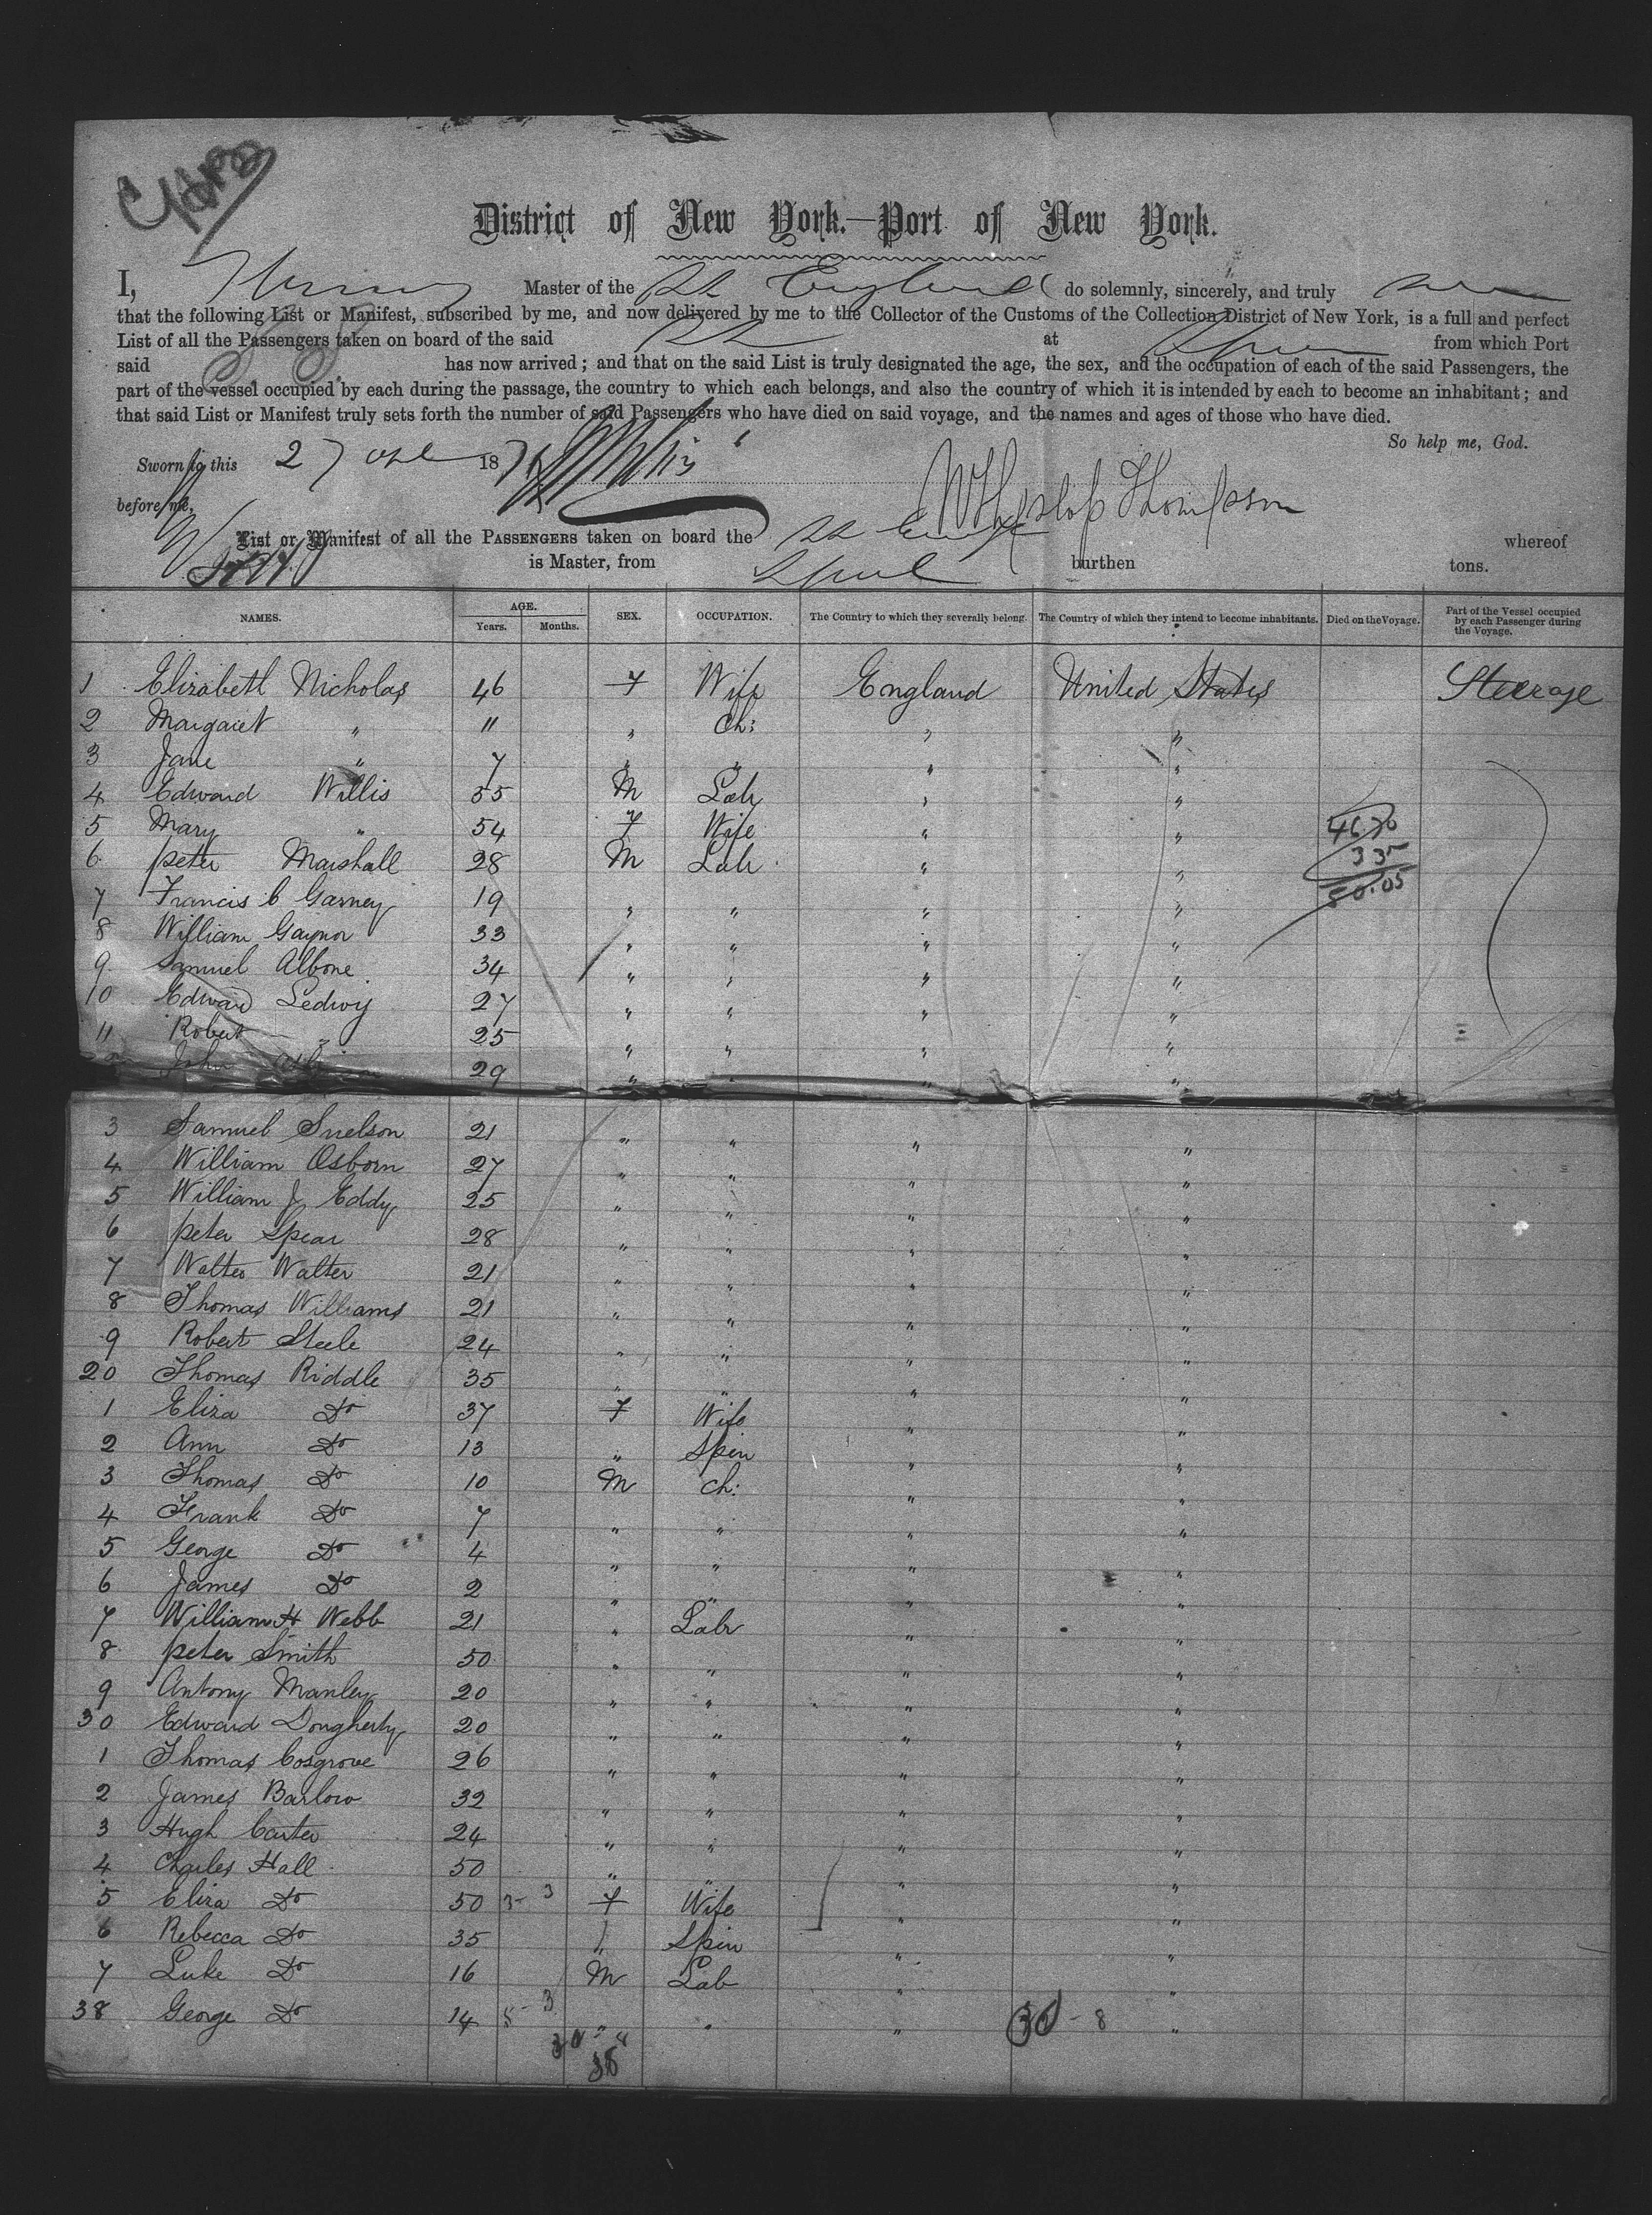 District of New York.—Port of New York.
I, Master of the SS England do solemnly, sincerely, and truly
that the following List or Manifest, subscribed by me, and now delivered by me to the Collector of the Customs of the Collection District of New York, is a full and perfect
List of all the Passengers taken on board of the said SS at Lpool from which Port
said has now arrived; and that on the said List is truly designated the age, the sex, and the occupation of each of the said Passengers, the
part of the vessel occupied by each during the passage, the country to which each belongs, and also the country of which it is intended by each to become an inhabitant; and
that said List or Manifest truly sets forth the number of said Passengers who have died on said voyage, and the names and ages of those who have died.
So help me, God.
Sworn to this 27 187
before me,
W Hyslop Thompson
List or Manifest of all the PASSENGERS taken on board the SS whereof
is Master, from Lpool burthen tons.
NAMES. AGE. Years. Months. SEX. OCCUPATION. The Country to which they severally belong. The Country of which they intend to become inhabitants. Died on the Voyage. Part of the Vessel occupied by each Passenger during the Voyage.
1 Elizabeth Nicholas 46 F Wife England United States Steerage
2 Margaret " 11 " Ch: " "
3 Jane " 7 " " " "
4 Edward Willis 55 M Labr " "
5 Mary " 54 F Wife " "
46.70
6 Peter Marshall 28 M Labr " "
335
50.05
7 Francis C Garney 19 " " " "
8 William Gaynor 33 " " " "
9 Samuel Albone 34 " " " "
10 Edward Ledwij 27 " " " "
11 Robert " 25 " " " "
John 29 " " " "
3 Samuel Snelson 21 " " " "
4 William Osborn 27 " " " "
5 William J Eddy 25 " " " "
6 Peter Spear 28 " " " "
7 Walter Walter 21 " " " "
8 Thomas Williams 21 " " " "
9 Robert Steele 24 " " " "
20 Thomas Riddle 35 " " " "
1 Eliza Do 37 F Wife " "
2 Ann Do 13 " Spin " "
3 Thomas Do 10 M Ch: " "
4 Frank Do 7 " " " "
5 George Do 4 " " " "
6 James Do 2 " " " "
7 William H Webb 21 " Labr " "
8 Peter Smith 50 " " " "
9 Antony Manley 20 " " " "
30 Edward Dougherty 20 " " " "
1 Thomas Cosgrove 26 " " " "
2 James Barlow 32 " " " "
3 Hugh Carter 24 " " " "
4 Charles Hall 50 " " " "
5 Eliza Do 50 3- 3 F Wife " "
6 Rebecca Do 35 " Spin " "
7 Luke Do 16 M Lab " "
38 George Do 14 5- 3 " " " 30 - 8 "
30
38